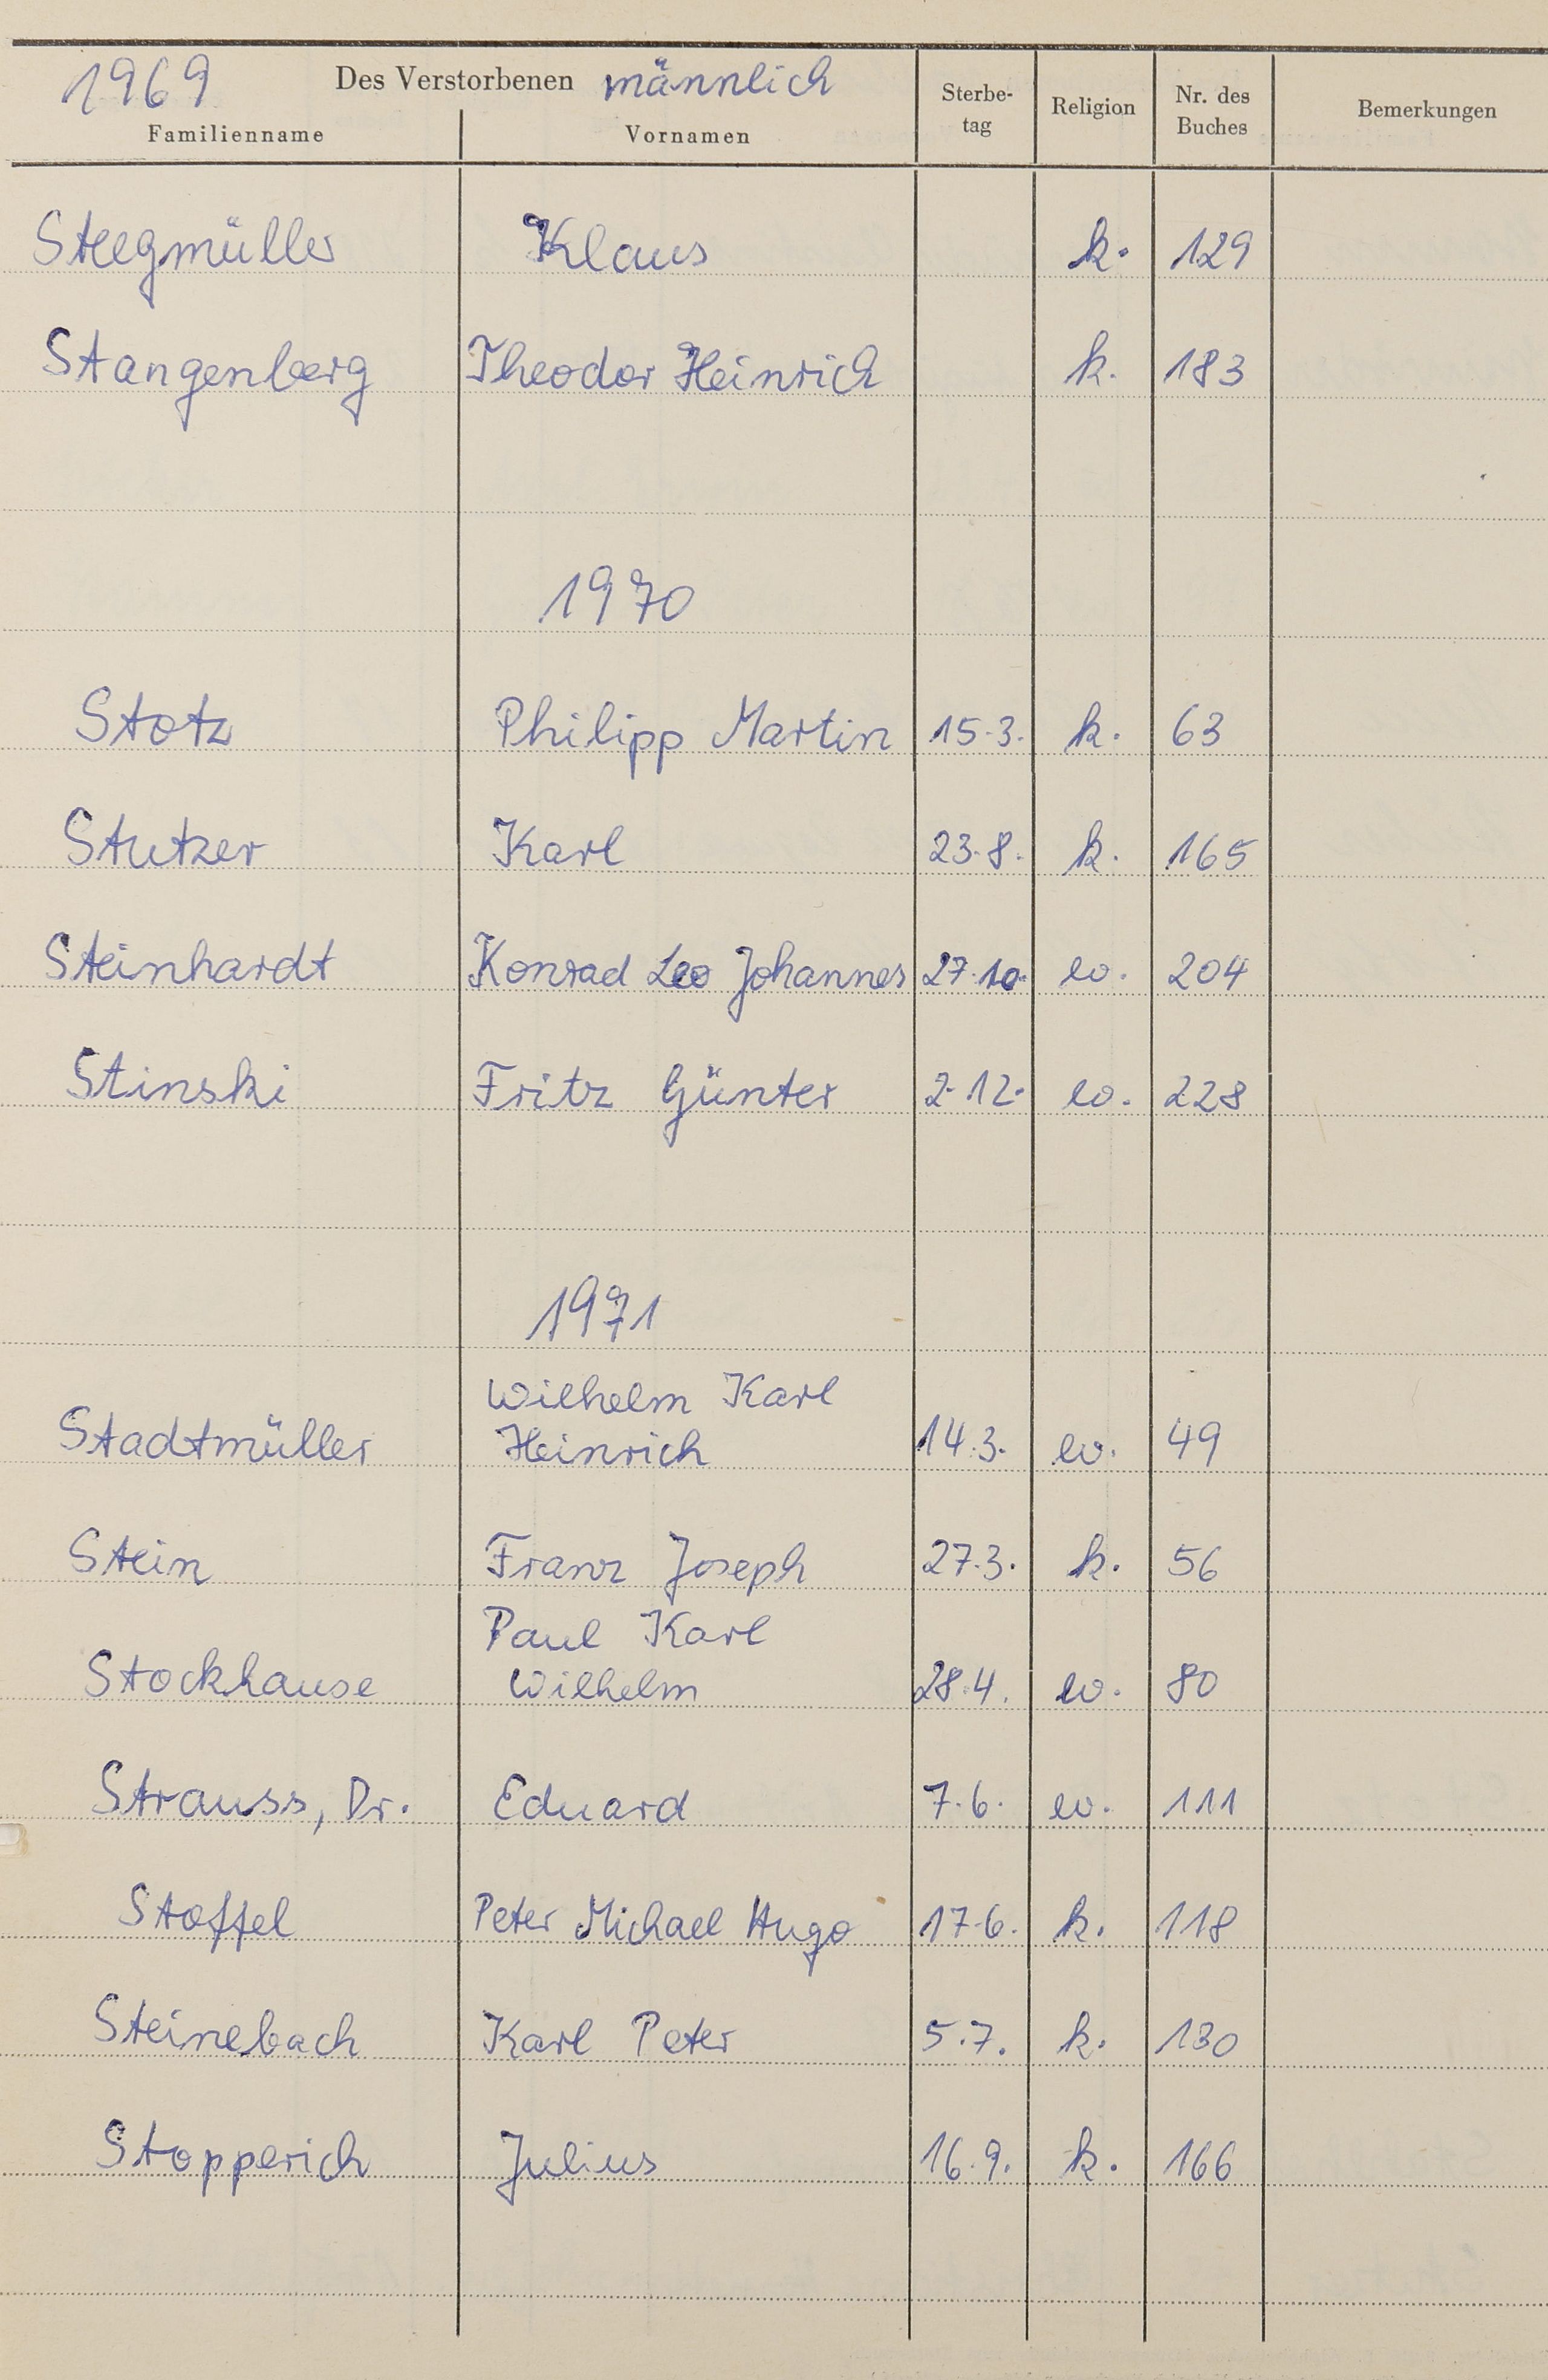 1969 Des Verstorbenen männlich
Familienname Vornamen Sterbe-
tag Religion Nr. des
Buches Bemerkungen
Steegmüller Klaus k. 129
Stangenberg Theodor Heinrich k. 183
1970
Stotz Philipp Martin 15.3. k. 63
Stutzer Karl 23.8. k. 165
Steinhardt Konrad Leo Johannes 27.10. ev. 204
Stinski Fritz Günter 2.12. ev. 228
1971
Wilhelm Karl
Stadtmüller Heinrich 14.3. ev. 49
Stein Franz Joseph 27.3. k. 56
Paul Karl
Stockhause Wilhelm 28.4. ev. 80
Strauss, Dr. Eduard 7.6. ev. 111
Stoffel Peter Michael Hugo 17.6. k. 118
Steinebach Karl Peter 5.7. k. 130
Stopperich Julius 16.9. k. 166